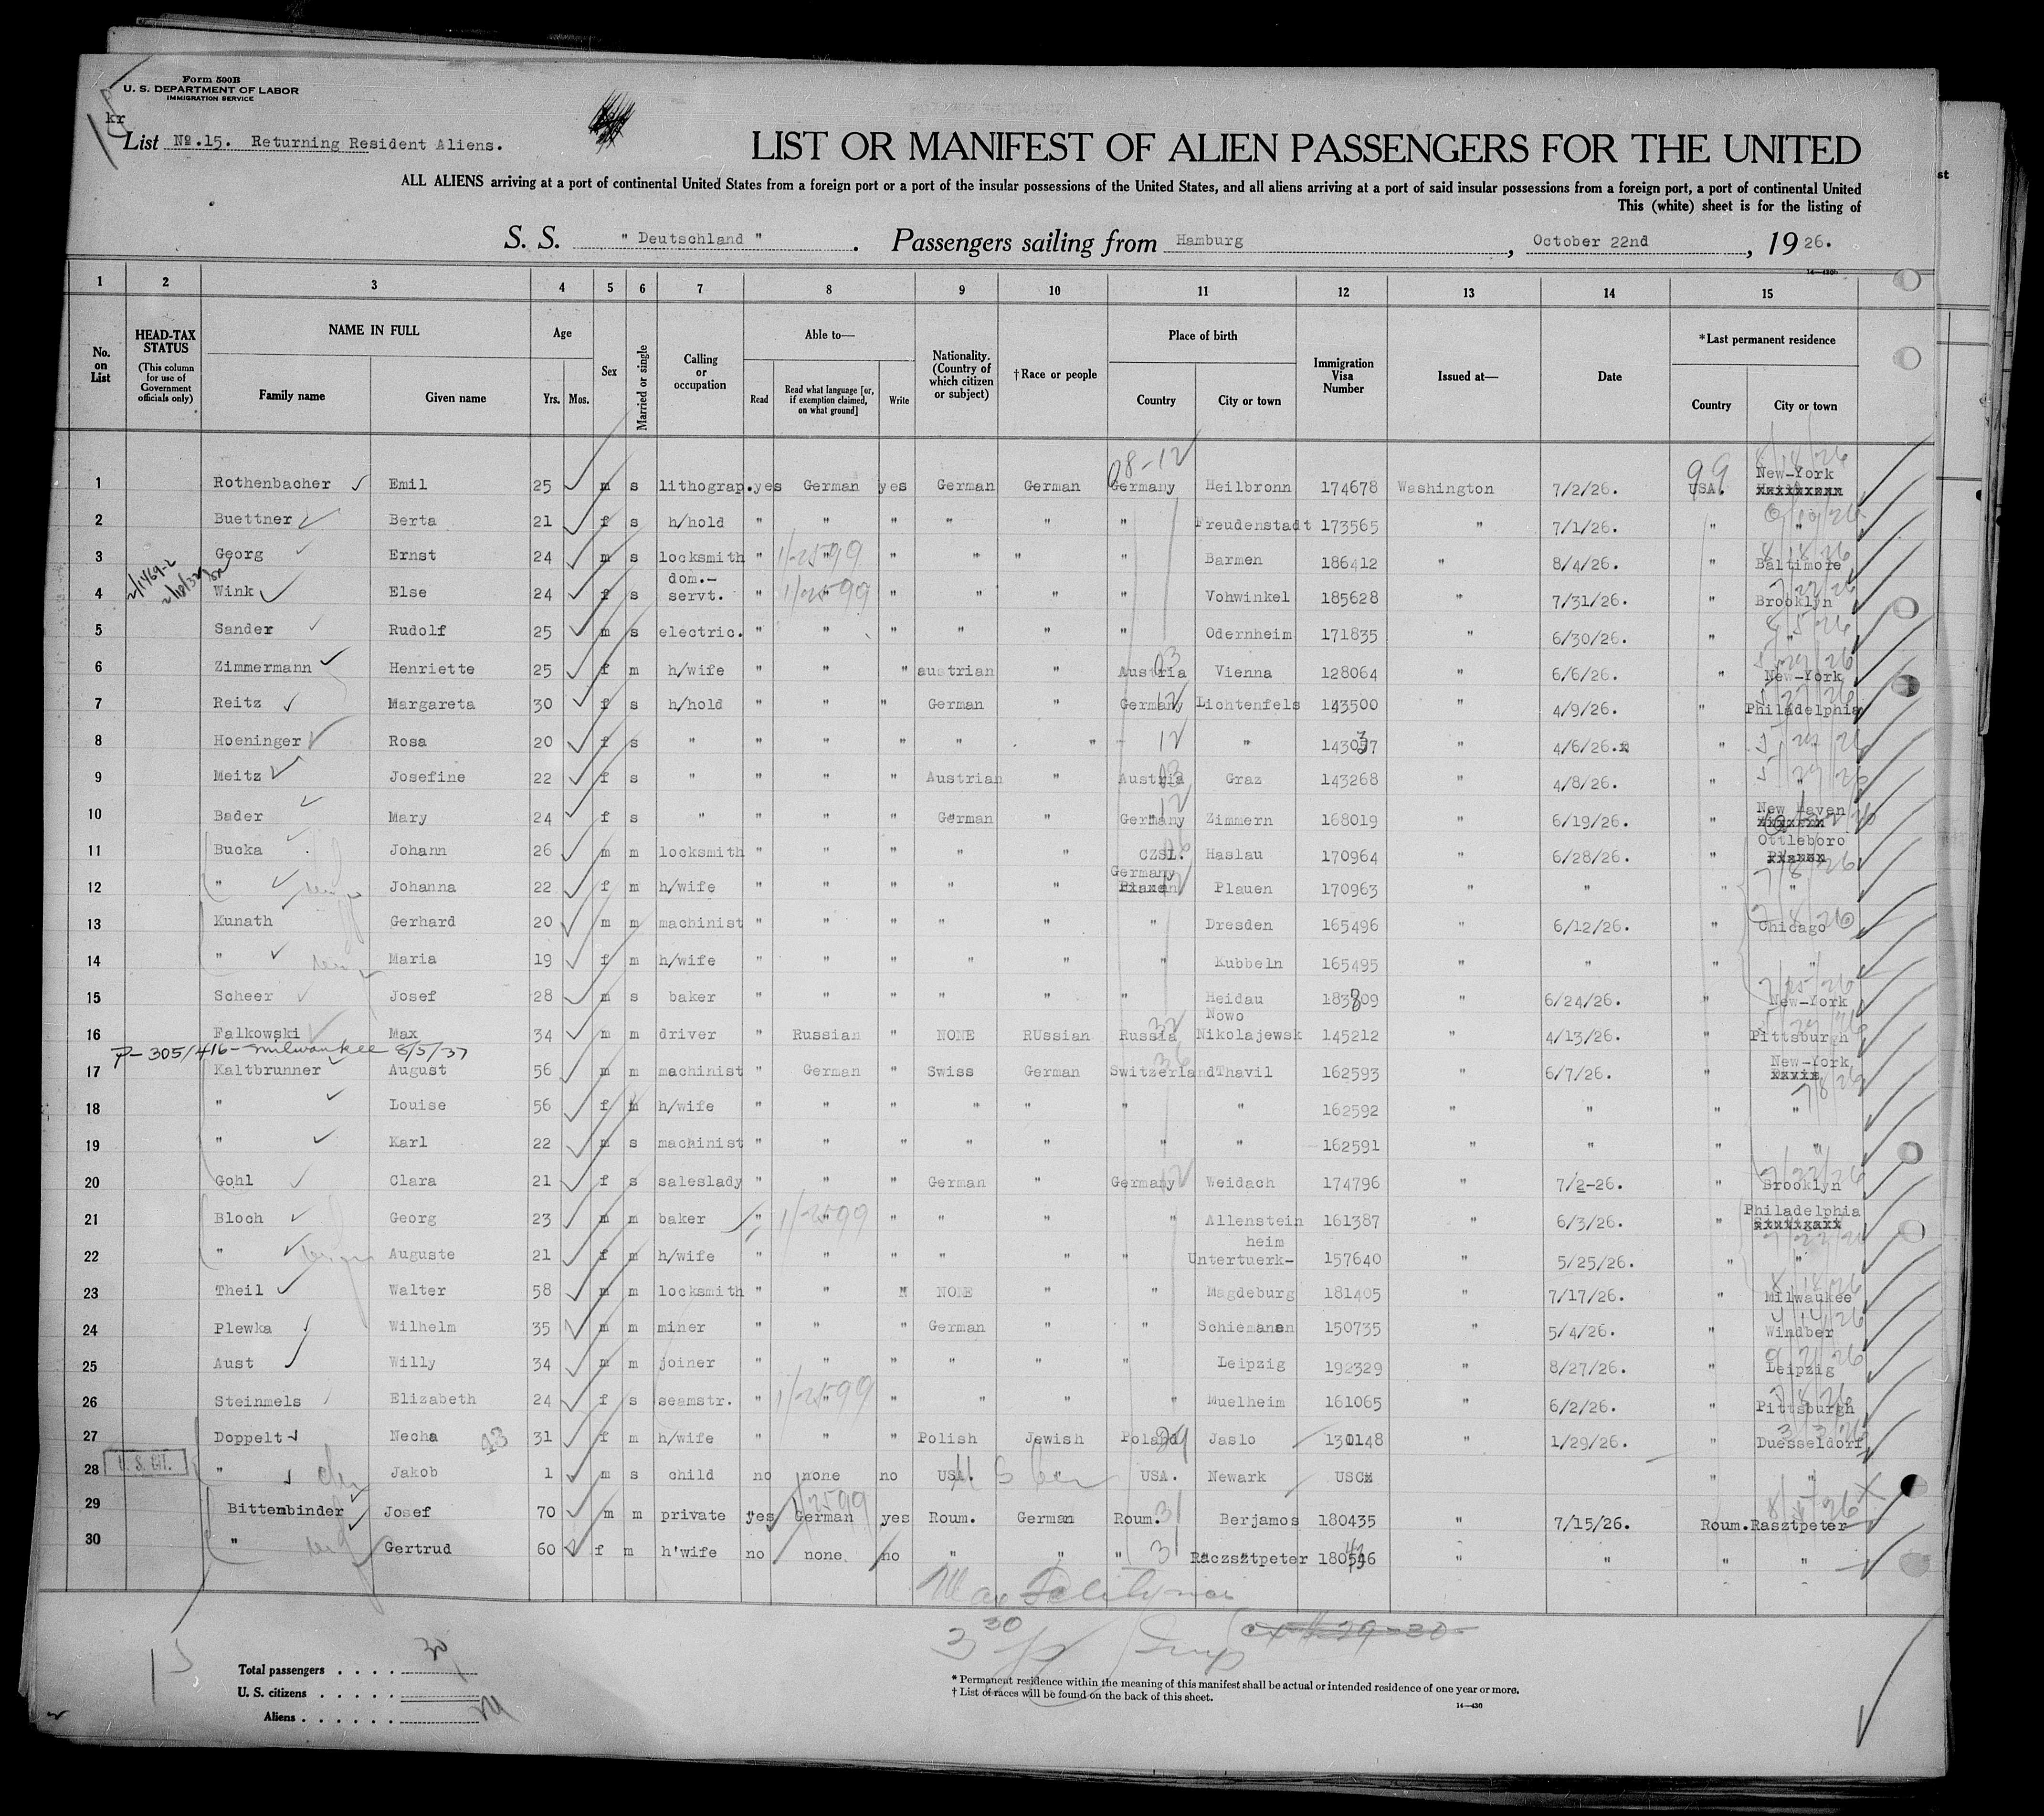 Form 500B
U. S. DEPARTMENT OF LABOR
IMMIGRATION SERVICE
kr
List No.15. Returning Resident Aliens.
LIST OR MANIFEST OF ALIEN PASSENGERS FOR THE UNITED
ALL ALIENS arriving at a port of continental United States from a foreign port or a port of the insular possessions of the United States, and all aliens arriving at a port of said insular possessions from a foreign port, a port of continental United
This (white) sheet is for the listing of
S. S. " Deutschland " . Passengers sailing from Hamburg , October 22nd , 19 26.
14—430b
1 2 3 4 5 6 7 8 9 10 11 12 13 14 15
No. on List
HEAD-TAX STATUS (This column for use of Government officials only)
NAME IN FULL Family name Given name
Age Yrs. Mos.
Sex
Married or single
Calling or occupation
Able to— Read Read what language [or, if exemption claimed, on what ground] Write
Nationality. (Country of which citizen or subject)
†Race or people
Place of birth Country City or town
Immigration Visa Number
Issued at—
Date
*Last permanent residence Country City or town
1 Rothenbacher Emil 25 m s lithograp. yes German yes German German Germany Heilbronn 174678 Washington 7/2/26. USA. New-York
2 Buettner Berta 21 f s h/hold " " " " " " Freudenstadt 173565 " 7/1/26. " "
3 Georg Ernst 24 m s locksmith " " " " " " Barmen 186412 " 8/4/26. " Baltimore
4 Wink Else 24 f s dom.-servt. " " " " " " Vohwinkel 185628 " 7/31/26. " Brooklyn
5 Sander Rudolf 25 m s electric. " " " " " " Odernheim 171835 " 6/30/26. " "
6 Zimmermann Henriette 25 f m h/wife " " " austrian " Austria Vienna 128064 " 6/6/26. " New-York
7 Reitz Margareta 30 f s h/hold " " " German " Germany Lichtenfels 143500 " 4/9/26. " Philadelphia
8 Hoeninger Rosa 20 f s " " " " " " " " " 4/6/26. " "
9 Meitz Josefine 22 f s " " " " Austrian " Austria Graz 143268 " 4/8/26. " "
10 Bader Mary 24 f s " " " " German " Germany Zimmern 168019 " 6/19/26. " New Haven
11 Bucka Johann 26 m m locksmith " " " " " CZSL. Haslau 170964 " 6/28/26. " Ottleboro
12 " Johanna 22 f m h/wife " " " " " Germany Plauen 170963 " " " "
13 Kunath Gerhard 20 m m machinist " " " " " " Dresden 165496 " 6/12/26. " Chicago
14 " Maria 19 f m h/wife " " " " " " Kubbeln 165495 " " " "
15 Scheer Josef 28 m s baker " " " " " " Heidau 183809 " 6/24/26. " New-York
16 Falkowski Max 34 m m driver " Russian " NONE RUssian Russia Nowo Nikolajewsk 145212 " 4/13/26. " Pittsburgh
P-305/416-Milwaukee 8/5/37
17 Kaltbrunner August 56 m m machinist " German " Swiss German Switzerland Thavil 162593 " 6/7/26. " New-York
18 " Louise 56 f m h/wife " " " " " " " 162592 " " " "
19 " Karl 22 m s machinist " " " " " " " 162591 " " " "
20 Gohl Clara 21 f s saleslady " " " German " Germany Weidach 174796 " 7/2-26. " Brooklyn
21 Bloch Georg 23 m m baker " " " " " " Allenstein 161387 " 6/3/26. " Philadelphia
22 " Auguste 21 f m h/wife " " " " " " Untertuerk-heim 157640 " 5/25/26. " "
23 Theil Walter 58 m m locksmith " " " NONE " " Magdeburg 181405 " 7/17/26. " Milwaukee
24 Plewka Wilhelm 35 m m miner " " " German " " Schiemanen 150735 " 5/4/26. " Windber
25 Aust Willy 34 m m joiner " " " " " " Leipzig 192329 " 8/27/26. " Leipzig
26 Steinmels Elizabeth 24 f s seamstr. " " " " " " Muelheim 161065 " 6/2/26. " Pittsburgh
27 Doppelt Necha 31 f m h/wife " " " Polish Jewish Poland Jaslo " 1/29/26. " Duesseldorf
28 U. S. CIT. " Jakob 1 m s child no none no USA. " USA. Newark " "
29 Bittenbinder Josef 70 m m private yes German yes Roum. German Roum. Berjamos 180435 " 7/15/26. Roum. Rasztpeter
30 " Gertrud 60 f m h'wife no none no " " " Raczsztpeter " " " "
Total passengers . . . . 30
U. S. citizens . . . . .
Aliens . . . . . .
* Permanent residence within the meaning of this manifest shall be actual or intended residence of one year or more.
† List of races will be found on the back of this sheet.
14—430